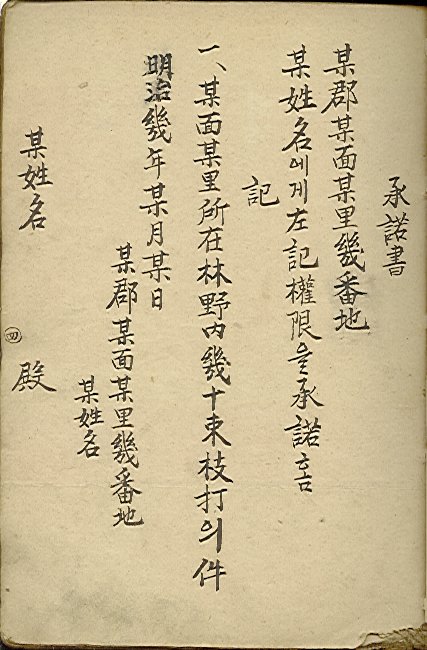 承諾書
某郡某面某里幾番地
某姓名에게左記權限을承諾홈
記
一、某面某里所在林野內幾十束枝打의件
明治幾年某月某日
某郡某面某里幾番地
某姓名
某姓名 殿
四